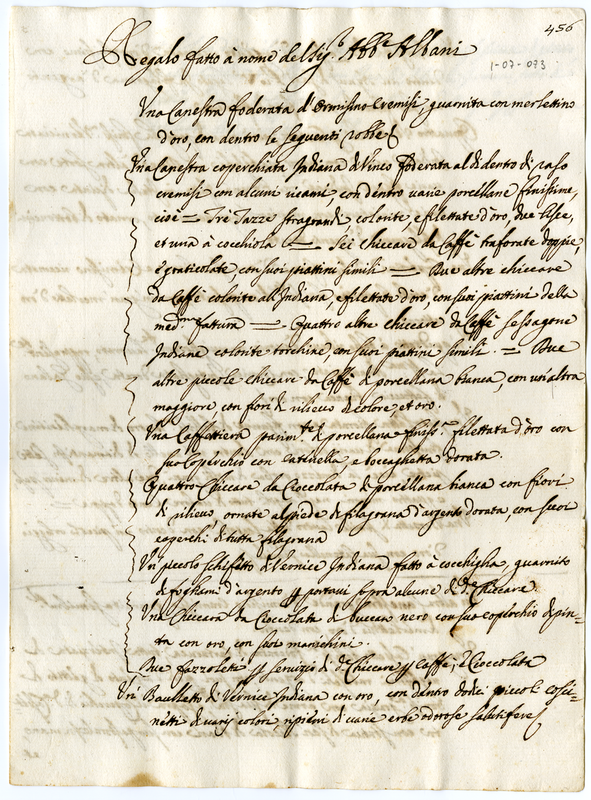 456
Regalo fatto à nome del Sig.r Abb.e Albani
1-07-073
Una Canestra foderata d'Ormisino Cremisi, guarnita con merlettino
d'oro, con dentro le seguenti robbe
Una Canestra coperchiata Indiana di Vinco foderata al di dentro di raso
cremisi con alcuni ricami, con dentro varie porcellane finissime,
cioè = Trè Tazze stragrandi colorite, e filettate d'oro, due lisce,
et una à cocchiola = Sei chiccare da Caffè traforate doppie,
e graticolate, con suoi piattini simili = Due altre chiccare
da Caffè colorite all'Indiana, e filettate d'oro, con suoi piattini della
med.ma fattura = Quattro altre chiccare da Caffè sessagone
Indiane colorite torchine, con suoi piattini simili. = Due
altre piccole chiccare da Caffè di porcellana bianca, con un'altra
maggiore, con fiori di rilievo di colore et oro.
Una Caffettiera parim.te di porcellana finiss.a filettata d'oro con
suo Coperchio con catinella, e boccaghetta dorata.
Quattro Chiccare da Cioccolata di porcellana bianca con fiori
di rilievo, ornate al piede di filagrana d'argento dorata, con suoi
coperchi di tutta filagrana
Un piccolo schifetto di Vernice Indiana fatto à cocchiglia, guarnito
di fogliami d'argento p portarvi sopra alcune di d.e Chiccare
Una Chiccara da Cioccolata di bucc nero con suo coperchio dipin=
ta con oro, con suoi manichini.
Due fazzoletti p servizio di d.e Chiccare p Caffè, e Cioccolata
Un Baulletto di Vernice Indiana con oro, con dentro dodici piccoli cosci=
netti di varij colori, ripieni di varie erbe odorose salutifere